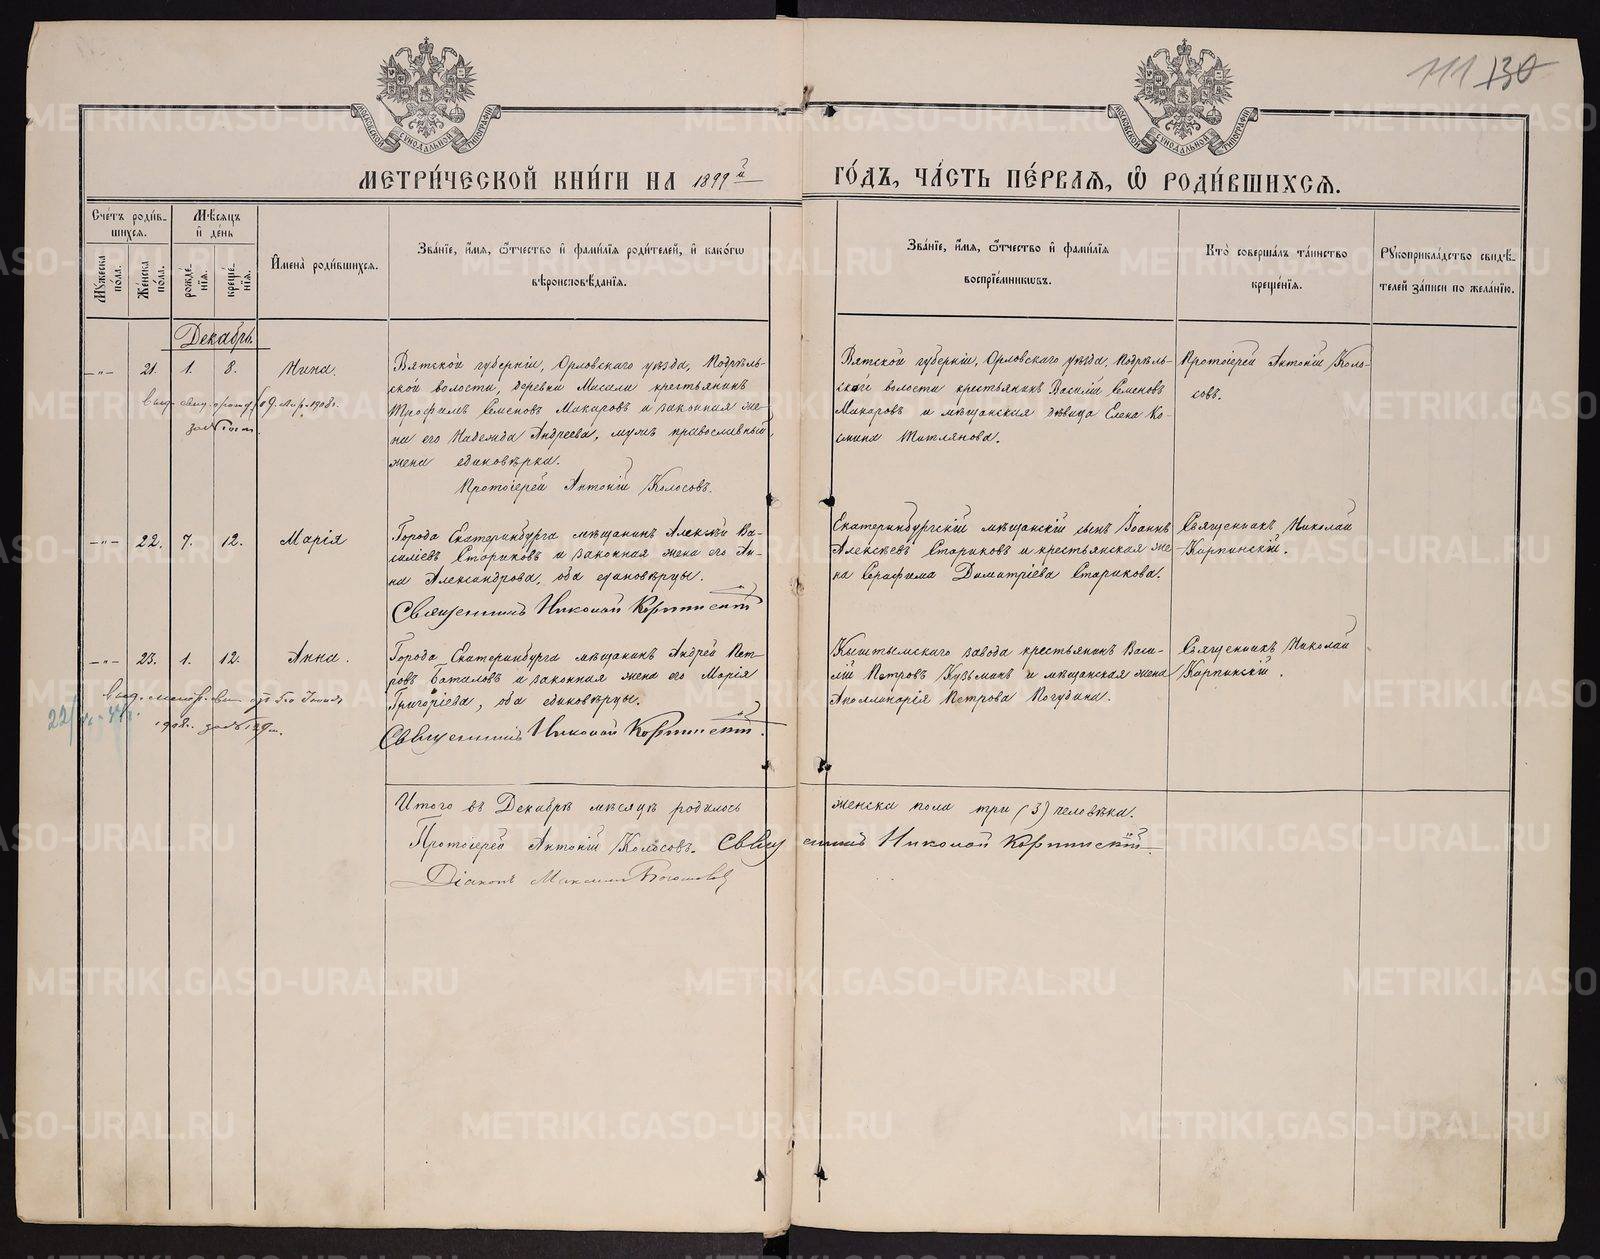 111 130
МОСКОВСКОЙ СѴНОДАЛЬНОЙ ТИПОГРАФІИ
МОСКОВСКОЙ СѴНОДАЛЬНОЙ ТИПОГРАФІИ
МЕТРИ́ЧЕСКОЙ КНИ́ГИ НА 1899й ГО́ДЪ, ЧА́СТЬ ПЕ́РВАЯ, Ѽ РОДИ́ВШИХСЯ.
Сче́тъ роди́в-
шихся.
Му́жеска по́ла.
Же́нска по́ла.
Мѣ́сяцъ
и҆ де́нь
рожде́-
нїя.
креще́-
нїя.
И҆мена̀ роди́вшихся.
Зва́нїе, и҆́мя, ѻ҆́тчество и҆ фами́лїя роди́телей, и҆ како́гѡ
вѣроисповѣ́данїя.
Зва́нїе, и҆́мя, ѻ҆́тчество и҆ фами́лїя
воспрїе́мникѡвъ.
Кто̀ соверша́лъ та́инство
креще́нїя.
Рꙋкоприкла́дство свидѣ́-
телей за́писи по жела́нїю.
Декабрь.
-"- 21. 1. 8. Нина.
Вятской губерніи, Орловскаго уѣзда, Подрѣль-
ской волости, деревни Масали крестьянинъ
Трофимъ Семеновъ Макаровъ и законная же-
на его Надежда Андреева, мужъ православный,
жена единовѣрка.
Протоіерей Антоній Колосовъ.
Вятской губерніи, Орловскаго уѣзда, Подрѣль-
ской волости крестьянинъ Василій Семеновъ
Макаровъ и мѣщанская дѣвица Елена Ко-
смина Титлянова.
Протоіерей Антоній Коло-
совъ.
1908г.
за №
-"- 22. 7. 12. Марія
Города Екатеринбурга мѣщанинъ Алексѣй Ва-
сильевъ Стариковъ и законная жена его Ан-
на Александрова, оба единовѣрцы.
Священникъ Николай Карпинскій
Екатеринбургскій мѣщанскій сынъ Іоаннъ
Алексѣевъ Стариковъ и крестьянская же-
на Серафима Димитріева Старикова.
Священникъ Николай
Карпинскій.
-"- 23. 1. 12. Анна.
Города Екатеринбурга мѣщанинъ Андрей Пет-
ровъ Баталовъ и законная жена его Марія
Григоріева, оба единовѣрцы.
Священникъ Николай Карпинскій.
Кыштымскаго завода крестьянинъ Васи-
лій Петровъ Кузьминъ и мѣщанская жена
Аполлинарія Петрова Погудина.
Священникъ Николай
Карпинскій.
1908г. за №
Итого въ Декабрѣ мѣсяцѣ родилось женска пола три (3) человѣка.
Протоіерей Антоній Колосовъ. Священникъ Николай Карпинскій.
Діаконъ Максимъ
METRIKI.GASO-URAL.RU